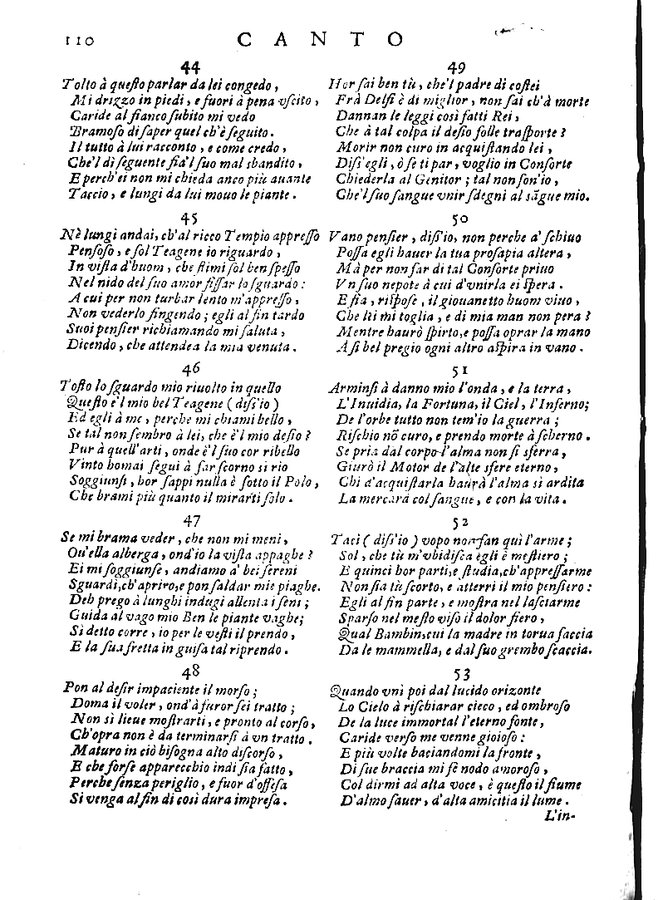 110 CANTO
44
Tolto à questo parlar da lei congedo,
Mi drizzo in piedi, e fuori à pena vscito,
Caride al fianco subito mi vedo
Bramoso di saper quel ch'è seguito.
Il tutto à lui racconto, e come credo,
Che'l di seguente fia'l suo mal sbandito,
E perch'ei non mi chieda anco più auante
Taccio, e lungi da lui mouo le piante.
45
Nè lungi andai, ch'al ricco Tempio appresso
Pensoso, e sol Teagene io riguardo,
In vista d'huom, che stimi sol ben spesso
Nel nido del suo amor fissar lo sguardo:
A cui per non turbar lento m'appresso,
Non vederlo fingendo; egli al fin tardo
Suoi pensier richiamando mi saluta,
Dicendo, che attendea la mia venuta.
46
Tosto lo sguardo mio riuolto in quello
Questo è'l mio bel Teagene (diss'io)
Ed egli à me, perche mi chiami bello,
Se tal non sembro à lei, che è'l mio desio?
Pur à quell'arti, onde è'l suo cor ribello
Vinto homai seguì à far scorno si rio
Soggiunsi, hor sappi nulla è sotto il Polo,
Che brami più quanto il mirarti solo.
47
Se mi brama veder, che non mi meni,
Ou'ella alberga, ond'io la vista appaghe?
Ei mi soggiunse, andiamo a' bei sereni
Sguardi, ch'apriro, e pon saldar mie piaghe.
Deh prego à lunghi indugi allenta i seni;
Guida al vago mio Ben le piante vaghe;
Sì detto corre, io per le vesti il prendo,
E la sua fretta in guisa tal riprendo.
48
Pon al desir impaciente il morso;
Doma il voler, ond'à furor sei tratto;
Non sì lieue mostrarti, e pronto al corso,
Ch'opra non è da terminarsi à vn tratto.
Maturo in ciò bisogna alto discorso,
E che forse apparecchio indi sia fatto,
Perche senza periglio, e fuor d'offesa
Si venga al fin di così dura impresa.
49
Hor sai ben tù, che'l padre di costei
Frà Delfi è di miglior, non sai ch'à morte
Dannan le leggi così fatti Rei,
Che à tal colpa il desio folle trasporte?
Morir non curo in acquistando lei,
Diss'egli, ò se ti par, voglio in Consorte
Chiederla al Genitor; tal non son'io,
Che'l suo sangue vnir sdegni al sãgue mio.
50
Vano pensier, diss'io, non perche a' schiuo
Possa egli hauer la tua prosapia altera,
Mà per non far di tal Consorte priuo
Vn suo nepote à cui d'vnirla ei spera.
E fia, rispose, il giouanetto huom viuo,
Che lei mi toglia, e di mia man non pera?
Mentre haurò spirto, e possa oprar la mano
A sì bel pregio ogni altro aspira in vano.
51
Arminsi à danno mio l'onda, e la terra,
L'Inuidia, la Fortuna, il Ciel, l'Inferno;
De l'orbe tutto non tem'io la guerra;
Rischio nõ curo, e prendo morte à scherno.
Se pria dal corpo l'alma non si sferra,
Giurò il Motor de l'alte sfere eterno,
Chi d'acquistarla haurà l'alma sì ardita
La mercarà col sangue, e con la vita.
52
Taci (diss'io) vopo non fan quì l'arme;
Sol, che tù m'vbidisca egli è mestiero;
E quinci hor parti, e studia, ch'appressarme
Non sia tù scorto, e atterri il mio pensiero:
Egli al fin parte, e mostra nel lasciarme
Sparso nel mesto viso il dolor fiero,
Qual Bambin, cui la madre in torua faccia
Da le mammella, e dal suo grembo scaccia.
53
Quando vnì poi dal lucido orizonte
Lo Cielo à rischiarar cieco, ed ombroso
De la luce immortal l'eterno fonte,
Caride verso me venne gioioso:
E più volte baciandomi la fronte,
Di sue braccia mi fè nodo amoroso,
Col dirmi ad alta voce, è questo il fiume
D'almo sauer, d'alta amicitia il lume.
L'in-